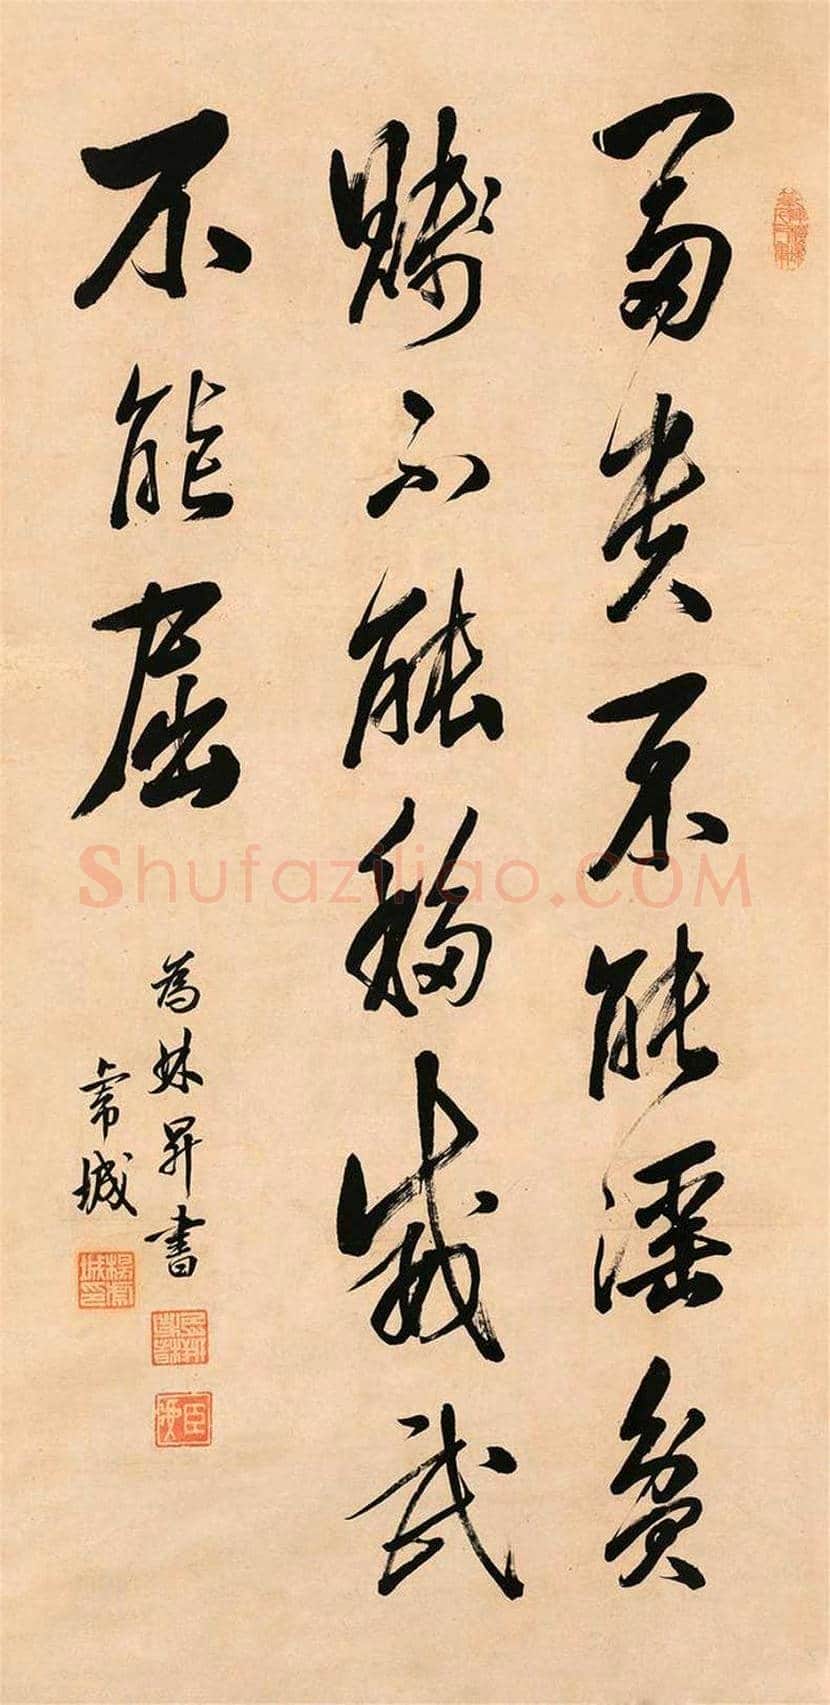 富貴不能淫貧
賤不能移威武
不能屈
為妹昇書
常城
Shufaziliao.COM